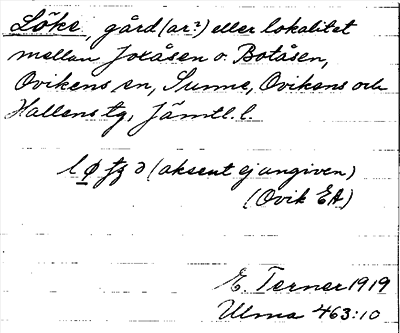 Löke, gård (ar?) eller lokalitet
mellan Joxåsen o. Botåsen,
Ovikens sn, Sunne, Ovikens och
Hallens tg, Jämtl. l.
(aksent ej angiven)
(Ovik EA)
E. Terner 1919
Ulma 463:10